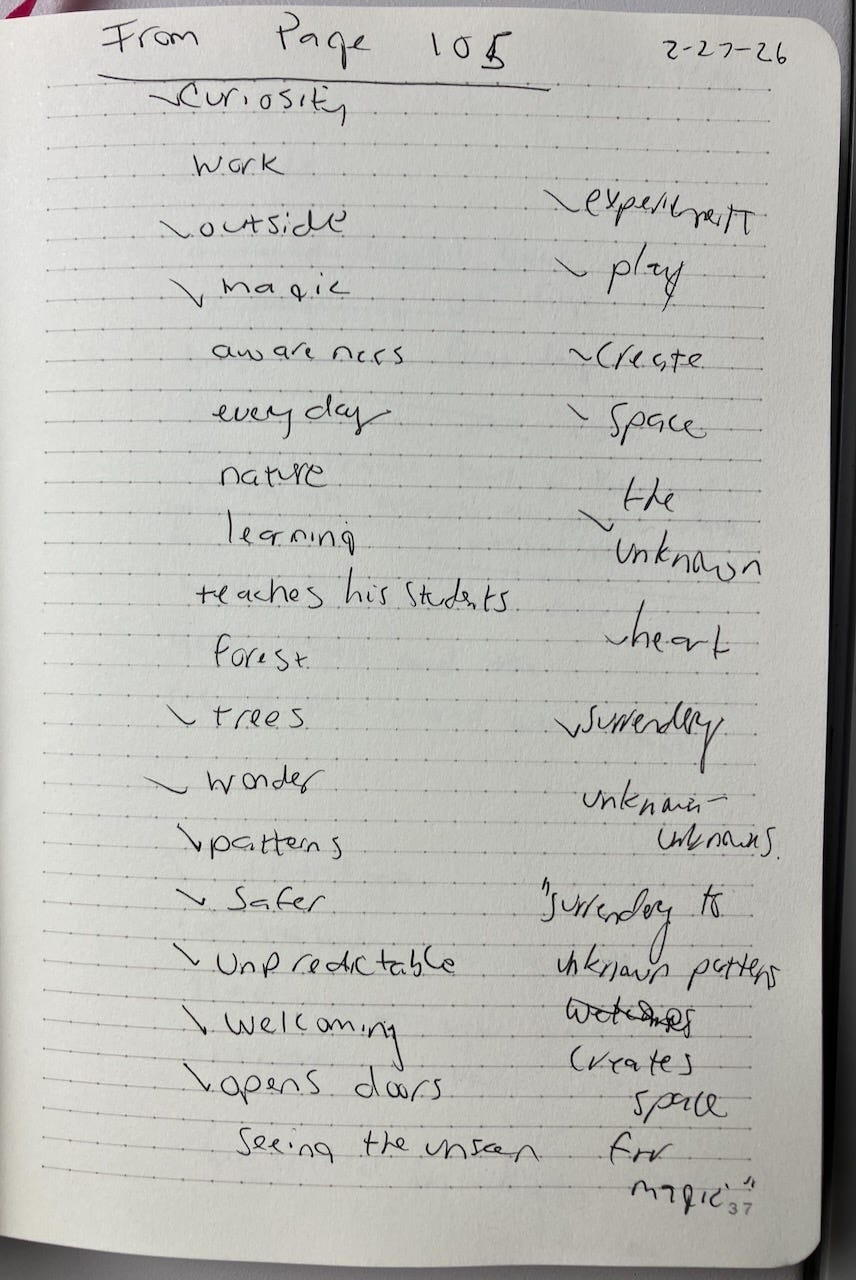 From Page 105
2-27-26
curiosity
work
outside
magic
awareness
every day
nature
learning
teaches his students
forest
trees
wonder
patterns
safer
unpredictable
welcoming
opens doors
seeing the unseen
experiment
play
create
space
the
unknown
heart
surrendery
unknown-
unknowns.
"surrendery to
unknown patterns
creates
space
for
magic."
37